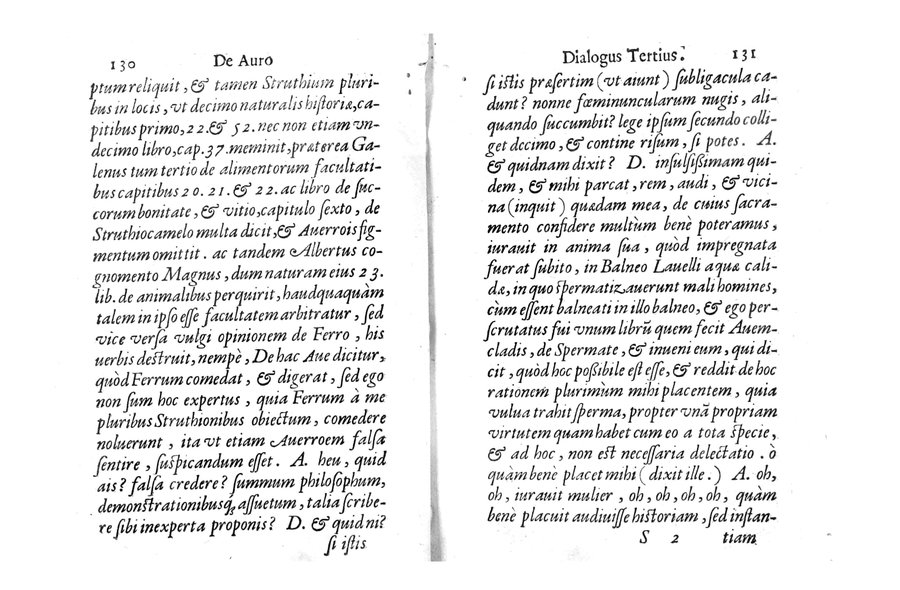 130 De Auro
ptum reliquit, & tamen Struthium pluri-
bus in locis, vt decimo naturalis historiæ, ca-
pitibus primo, 22. & 52. nec non etiam vn-
decimo libro, cap. 37. meminit, præterea Ga-
lenus tum tertio de alimentorum facultati-
bus capitibus 20. 21. & 22. ac libro de suc-
corum bonitate, & vitio, capitulo sexto, de
Struthiocamelo multa dicit, & Auerrois fig-
mentum omittit. ac tandem Albertus co-
gnomento Magnus, dum naturam eius 23.
lib. de animalibus perquirit, haudquaquàm
talem in ipso esse facultatem arbitratur, sed
vice versa vulgi opinionem de Ferro, his
uerbis destruit, nempè, De hac Aue dicitur,
quòd Ferrum comedat, & digerat, sed ego
non sum hoc expertus, quia Ferrum à me
pluribus Struthionibus obiectum, comedere
noluerunt, ita vt etiam Auerroem falsa
sentire, suspicandum esset. A. heu, quid
ais? falsa credere? summum philosophum,
demonstrationibusq; assuetum, talia scribe-
re sibi inexperta proponis? D. & quid ni?
si istis
Dialogus Tertius. 131
si istis præsertim (vt aiunt) subligacula ca-
dunt? nonne fœminuncularum nugis, ali-
quando succumbit? lege ipsum secundo colli-
get decimo, & contine risum, si potes. A.
& quidnam dixit? D. insulsissimam qui-
dem, & mihi parcat, rem, audi, & vici-
na (inquit) quædam mea, de cuius sacra-
mento confidere multùm benè poteramus,
iurauit in anima sua, quòd impregnata
fuerat subito, in Balneo Lauelli aquæ cali-
dæ, in quo spermatizauerunt mali homines,
cùm essent balneati in illo balneo, & ego per-
scrutatus fui vnum librũ quem fecit Auem-
cladis, de Spermate, & inueni eum, qui di-
cit, quòd hoc possibile est esse, & reddit de hoc
rationem plurimùm mihi placentem, quia
vulua trahit sperma, propter vnã propriam
virtutem quam habet cum eo a tota specie,
& ad hoc, non est necessaria delectatio. ò
quàm benè placet mihi (dixit ille.) A. oh,
oh, iurauit mulier, oh, oh, oh, oh, quàm
benè placuit audiuisse historiam, sed instan-
S 2 tiam